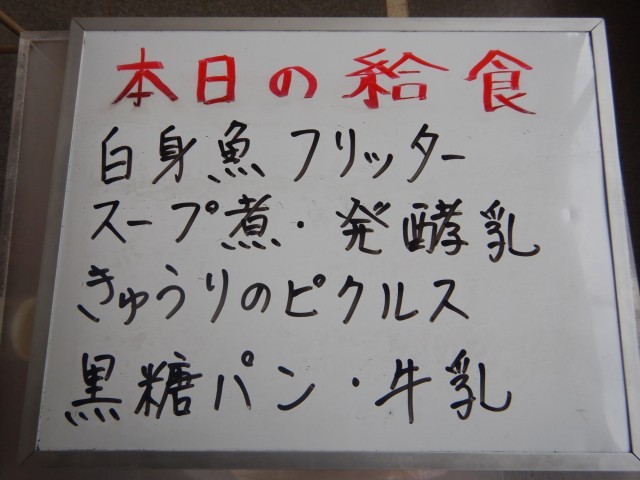 本日の給食
白身魚フリッター
スープ煮・発酵乳
きゅうりのピクルス
黒糖パン・牛乳